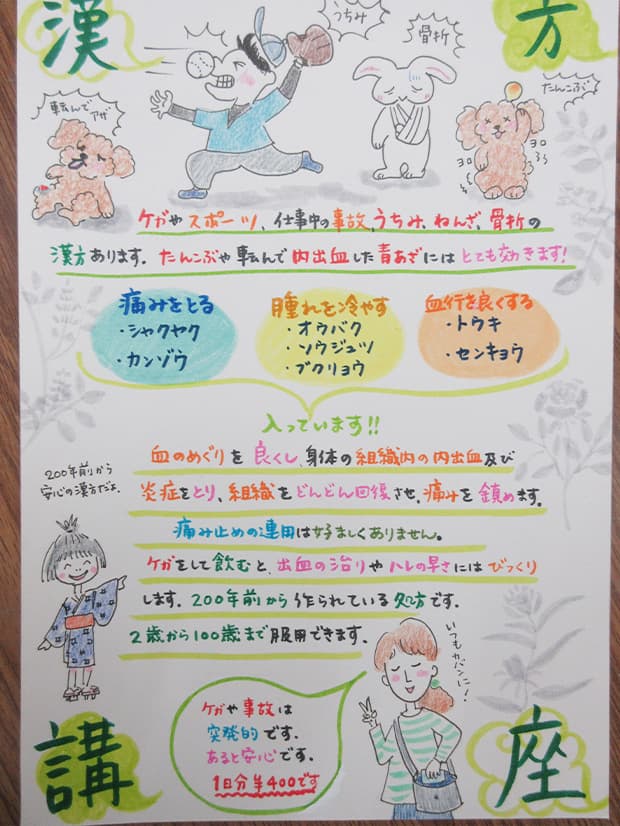 漢方
うちみ
骨折
転んでアザ
たんこぶ
ヨロ
ヨロ〜
ケガやスポーツ、仕事中の事故、うちみ、ねんざ、骨折の
漢方あります。たんこぶや転んで内出血した青あざにはとても効きます!
痛みをとる
・シャクヤク
・カンゾウ
腫れを冷やす
・オウバク
・ソウジュツ
・ブクリョウ
血行を良くする
・トウキ
・センキョウ
入っています!!
血のめぐりを良くし、身体の組織内の内出血及び
炎症をとり、組織をどんどん回復させ、痛みを鎮めます。
痛み止めの連用は好ましくありません。
ケガをして飲むと、出血の治りやハレの早さにはびっくり
します。200年前から作られている処方です。
2歳から100歳まで服用できます。
200年前から
安心の漢方だよ。
いつもカバンに!
ケガや事故は
突発的です。
あると安心です。
1日分¥400です
講座